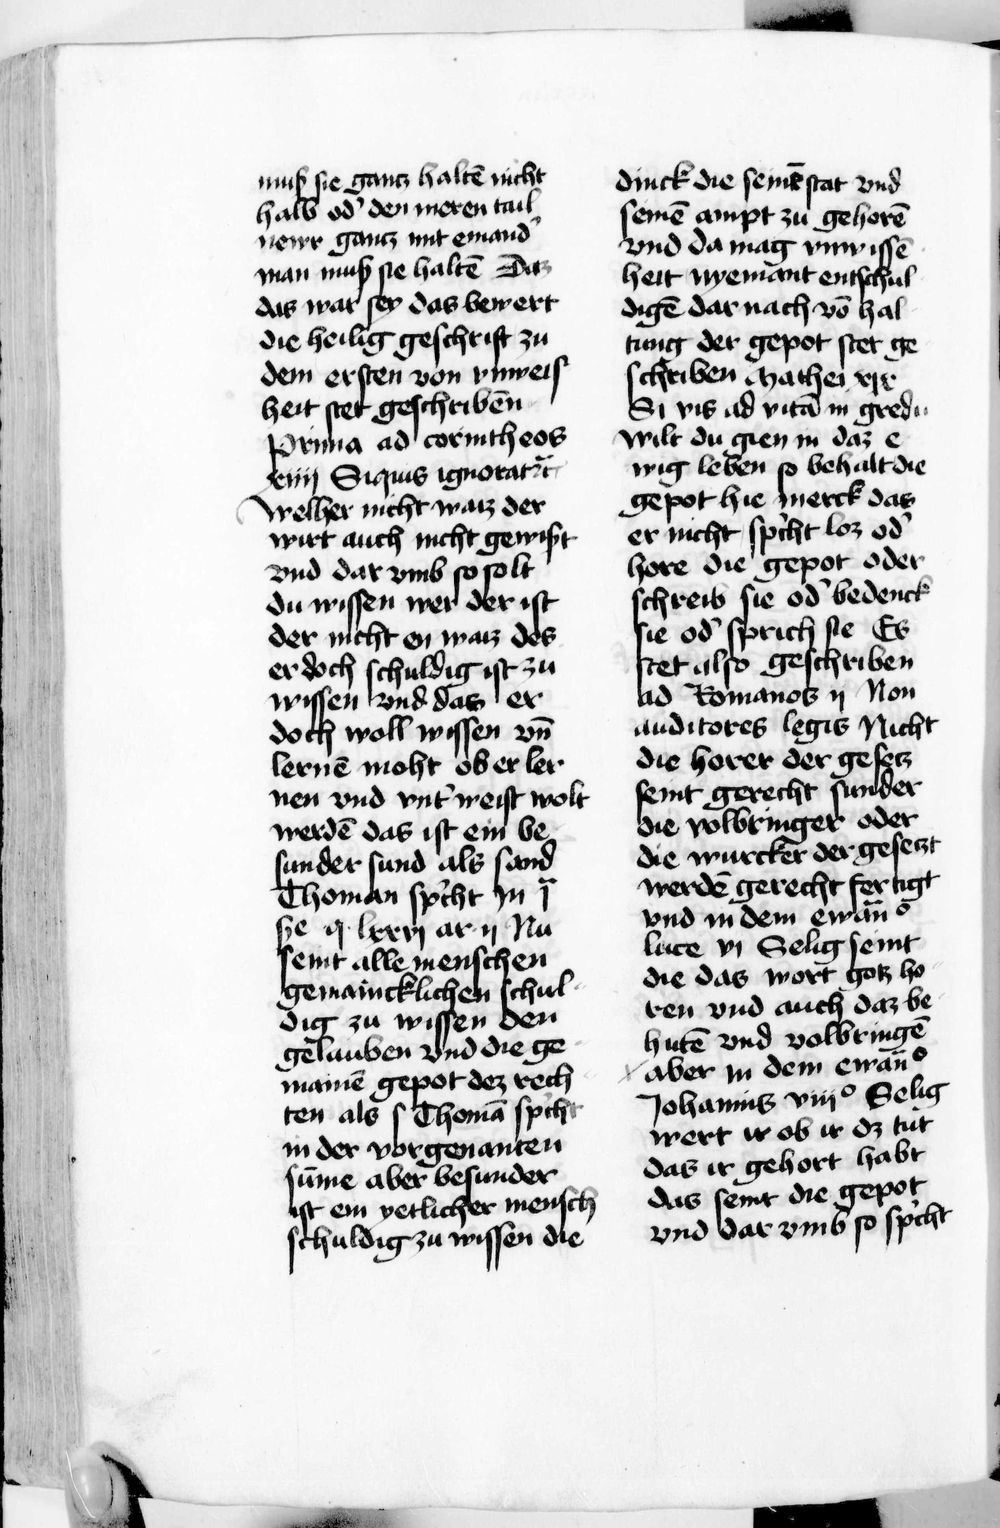 muß sie gantz haltē nicht
halb od' den meren tail
newr gantz mit emand'
man muß sie haltē Daz
das war sey das bewert
die heilig geschrift zu
dem ersten von vnweis
heit stet geschribēn
Prima ad corintheos
xiiij Siquis ignorat rc̄
Welher nicht waiz der
wirt auch nicht gewißt
vnd dar vmb so solt
du wissen wer der ist
der nicht en waiz des
er doch schuldig ist zu
wissen vnd das er
doch woll wissen vn̄
lernē moht ob er ler
nen vnd vnt' weist wolt
werdē das ist ein be
sunder sund als sand
Thoman sp'cht In ī
ſe q lxxvj ar ij Nu
seint alle menschen
gemaincklichen schul-
dig zu wissen den
gelauben vnd die ge-
mainē gepot dez rech
ten als s Thomā sp'cht
in der vorgenanten
sūme aber besunder
ist ein yetlicher mensch
schuldig zu wissen die
dinck die seinē stat vnd
seinē ampt zu gehorē
vnd da mag vnwissē-
heit nyemant entschul-
digē dar nach vō hal-
tung der gepot stet ge
schriben Mathei xix
Si vis ad vitā in gredi
wilt du gien in daz e
wig leben so behalt die
gepot hie merck das
er nicht sp'cht loz od'
hore die gepot oder
schreib sie od' bedenck
sie od' sprich sie Es
stet also geschriben
ad Romanos ij Non
auditores legis Nicht
die horer der gesetz
seint gerecht sunder
die volbringer oder
die wurcker der gesetzt
werdē gerecht fertigt
vnd in dem ewān̄o
luce vi Selig seint
die das wort gotz ho-
ren vnd auch daz be-
hutē vnd volbringē
aber in dem ewan̄o
Johannis viijo Selig
wert ir ob ir dz tut
das ir gehort habt
das seint die gepot
vnd dar vmb so sp'cht